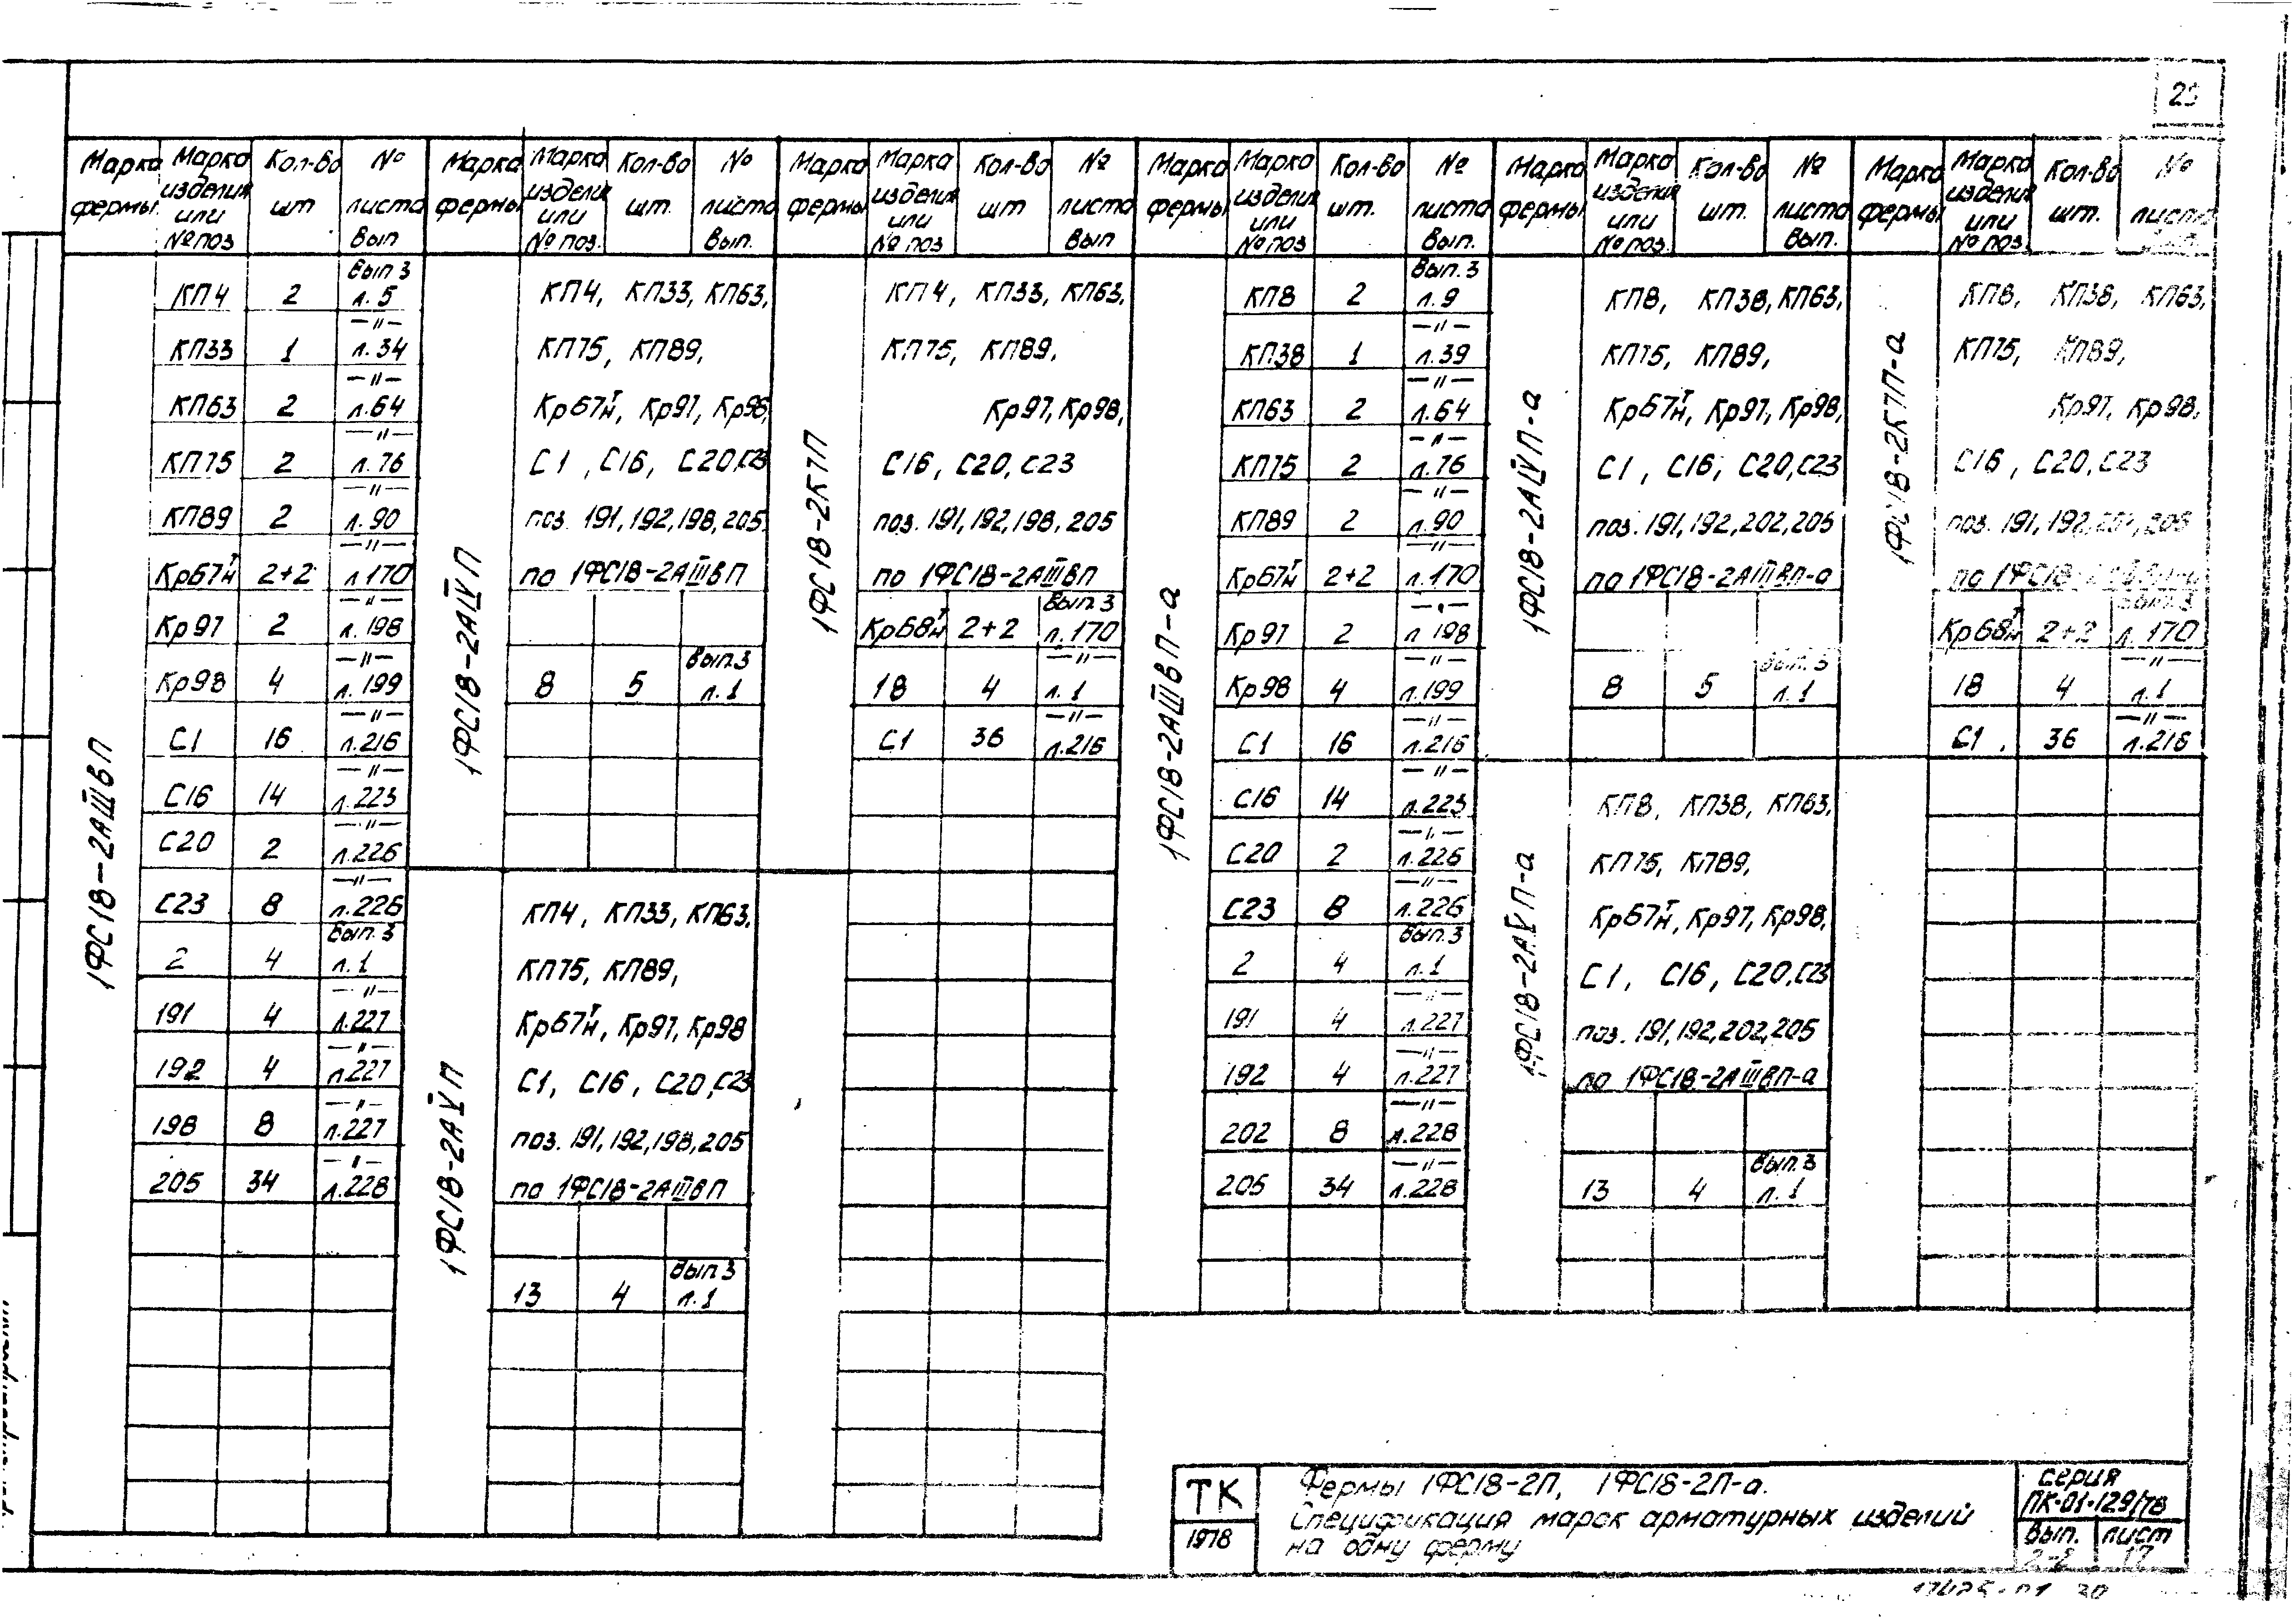 Марка фермы | Марка изделия или № поз | Кол-во шт | № листа Вып
1ФС18-2АIIIвП
КП4 | 2 | Вып 3 л. 5
КП33 | 1 | —"— л. 34
КП63 | 2 | —"— л.64
КП75 | 2 | —"— л.76
КП89 | 2 | —"— л.90
Кр67тн | 2+2 | —"— л170
Кр97 | 2 | —"— л. 198
Кр98 | 4 | —"— л. 199
С1 | 16 | —"— л.216
С16 | 14 | —"— л.223
С20 | 2 | —"— л.226
С23 | 8 | —"— л.226
2 | 4 | Вып. 3 л.1
191 | 4 | —"— л.227
192 | 4 | —"— л.227
198 | 8 | —"— л.227
205 | 34 | —"— л.228
Марка фермы | Марка изделия или № поз. | Кол-во шт. | № листа Вып.
1ФС18-2АIVП
КП4, КП33, КП63,
КП75, КП89,
Кр67тн, Кр97, Кр98,
С1, С16, С20, С23
поз. 191, 192, 198, 205
по 1ФС18-2АIIIвП
8 | 5 | Вып.3 л.1
1ФС18-2АVП
КП4, КП33, КП63,
КП75, КП89,
Кр67тн, Кр97, Кр98
С1, С16, С20, С23
поз. 191, 192, 198, 205
по 1ФС18-2АIIIвП
13 | 4 | Вып 3 л.1
Марка фермы | Марка изделия или № поз | Кол-во шт | № листа Вып
1ФС18-2К7П
КП4, КП33, КП63,
КП75, КП89,
Кр97, Кр98,
С16, С20, С23
поз. 191, 192, 198, 205
по 1ФС18-2АIIIвП
Кр68тн | 2+2 | Вып. 3 л.170
18 | 4 | —"— л. 1
С1 | 36 | —"— л.216
Марка фермы | Марка изделия или № поз | Кол-во шт. | № листа Вып.
1ФС18-2АIIIвП-а
КП8 | 2 | Вып. 3 л. 9
КП38 | 1 | —"— л.39
КП63 | 2 | —"— л.64
КП75 | 2 | —"— л.76
КП89 | 2 | —"— л.90
Кр67тн | 2+2 | —"— л.170
Кр97 | 2 | —"— л 198
Кр98 | 4 | —"— л.199
С1 | 16 | —"— л.216
С16 | 14 | —"— л.223
С20 | 2 | —"— л.226
С23 | 8 | —"— л.226
2 | 4 | Вып.3 л.1
191 | 4 | —"— л.227
192 | 4 | —"— л.227
202 | 8 | —"— л.228
205 | 34 | —"— л.228
Марка фермы | Марка изделия или № поз. | Кол-во шт. | № листа Вып.
1ФС18-2АIVП-а
КП8, КП38, КП63,
КП75, КП89,
Кр67тн, Кр97, Кр98,
С1, С16, С20, С23
поз. 191, 192, 202, 205
по 1ФС18-2АIIIвП-а
8 | 5 | Вып. 3 л. 1
1ФС18-2АVП-а
КП8, КП38, КП63,
КП75, КП89,
Кр67тн, Кр97, Кр98,
С1, С16, С20, С23
поз. 191, 192, 202, 205
по 1ФС18-2АIIIвП-а
13 | 4 | Вып.3 л. 1
Марка фермы | Марка изделия или № поз. | Кол-во шт. | № листа
1ФС18-2К7П-а
КП8, КП38, КП63,
КП75, КП89,
Кр97, Кр98,
С16, С20, С23
поз. 191, 192, 205
по
Кр68тн | 2+2 | Вып.3 л. 170
18 | 4 | —"— л.1
С1 | 36 | —"— л.216
ТК
1978
Фермы 1ФС18-2П, 1ФС18-2П-а.
Спецификация марок арматурных изделий
на одну ферму
серия
ПК-01-129/78
Вып. | лист
17